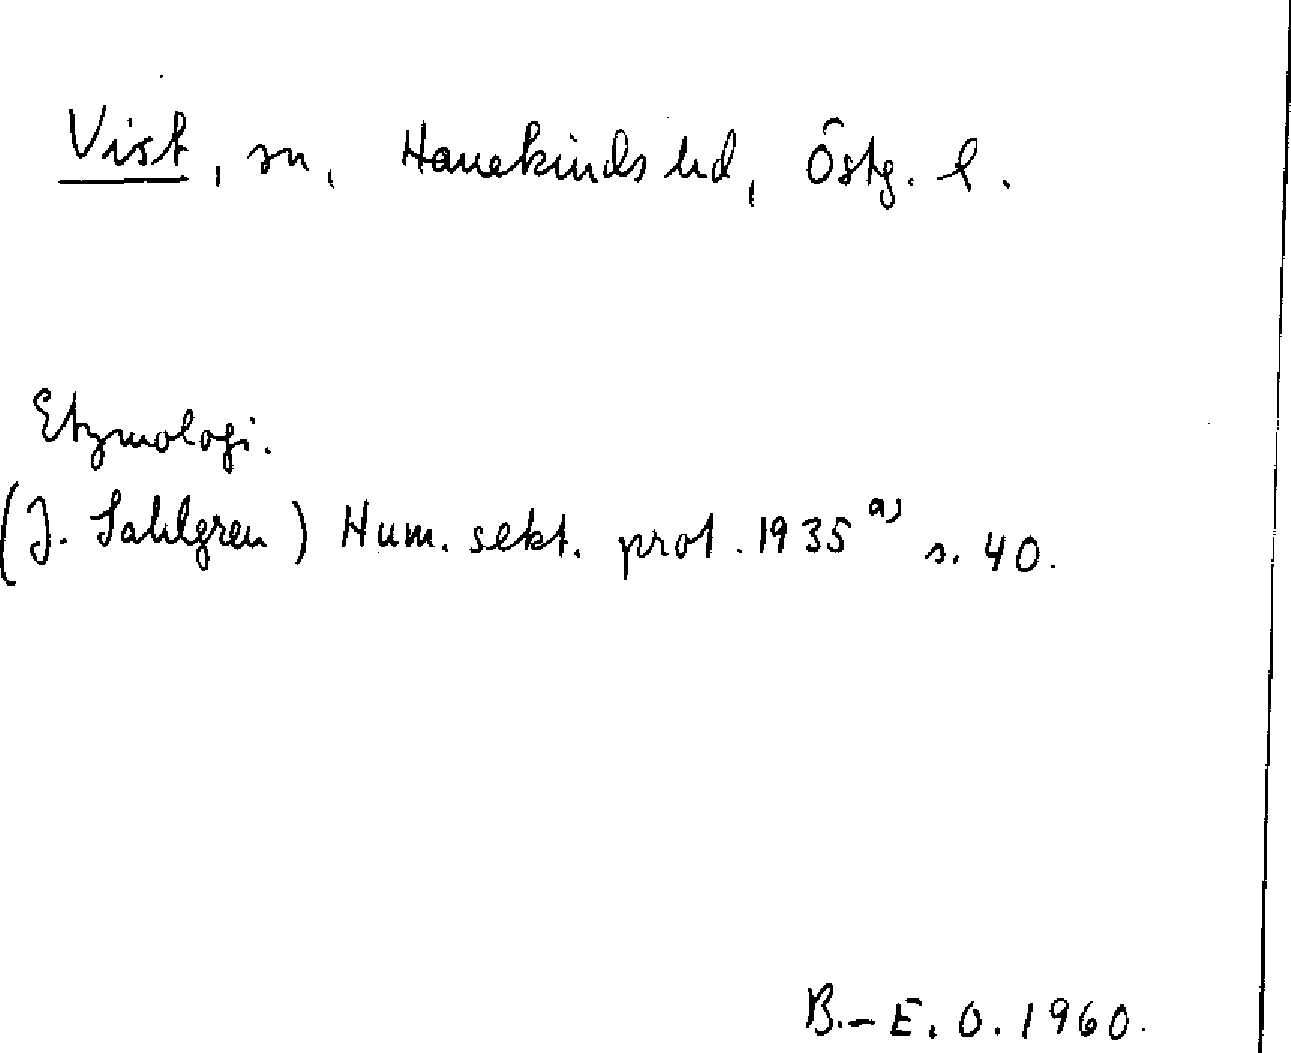 Vist, sn, Hanekinds hd, Östg. l.
Etymologi.
(J. Sahlgren) Hum. sekt. prot. 1935 a) s. 40.
B.-E. O. 1960.